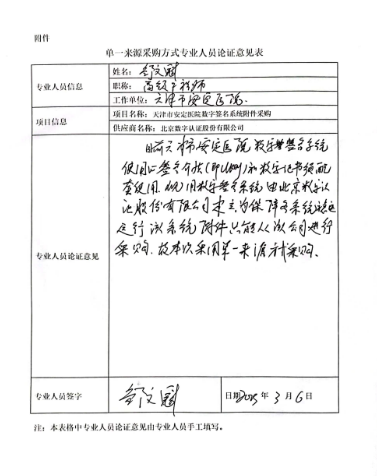 附件
单一来源采购方式专业人员论证意见表
专业人员信息
姓名：
职称：高级工程师
工作单位：天津市安定医院
项目信息
项目名称：天津市安定医院数字签名系统附件采购
供应商名称：北京数字认证股份有限公司
专业人员论证意见
天津市安定医院数字签名系统
使用的签名介质(即UKey)和数字证书须配
套使用。现用数字签名系统由北京数字认
证股份有限公司承立,为保障系统稳定
运行,该系统附件只能从该公司进行
采购,故本次采用单一来源方式采购。
专业人员签字
日期2025年3月6日
注：本表格中专业人员论证意见由专业人员手工填写。